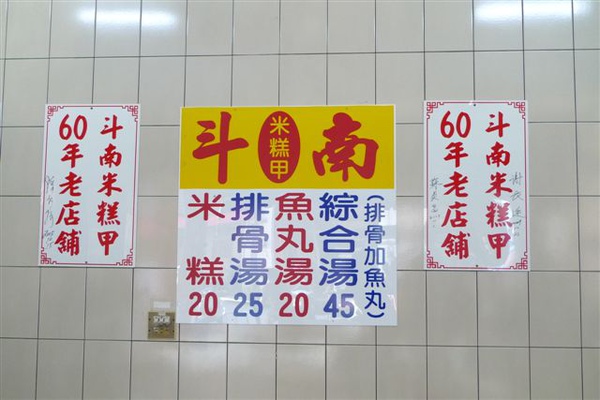 斗南米糕甲
60年老店舖
斗 米糕甲 南
(排骨加魚丸)
綜合湯 45
魚丸湯 20
排骨湯 25
米糕 20
斗南米糕甲
60年老店舖